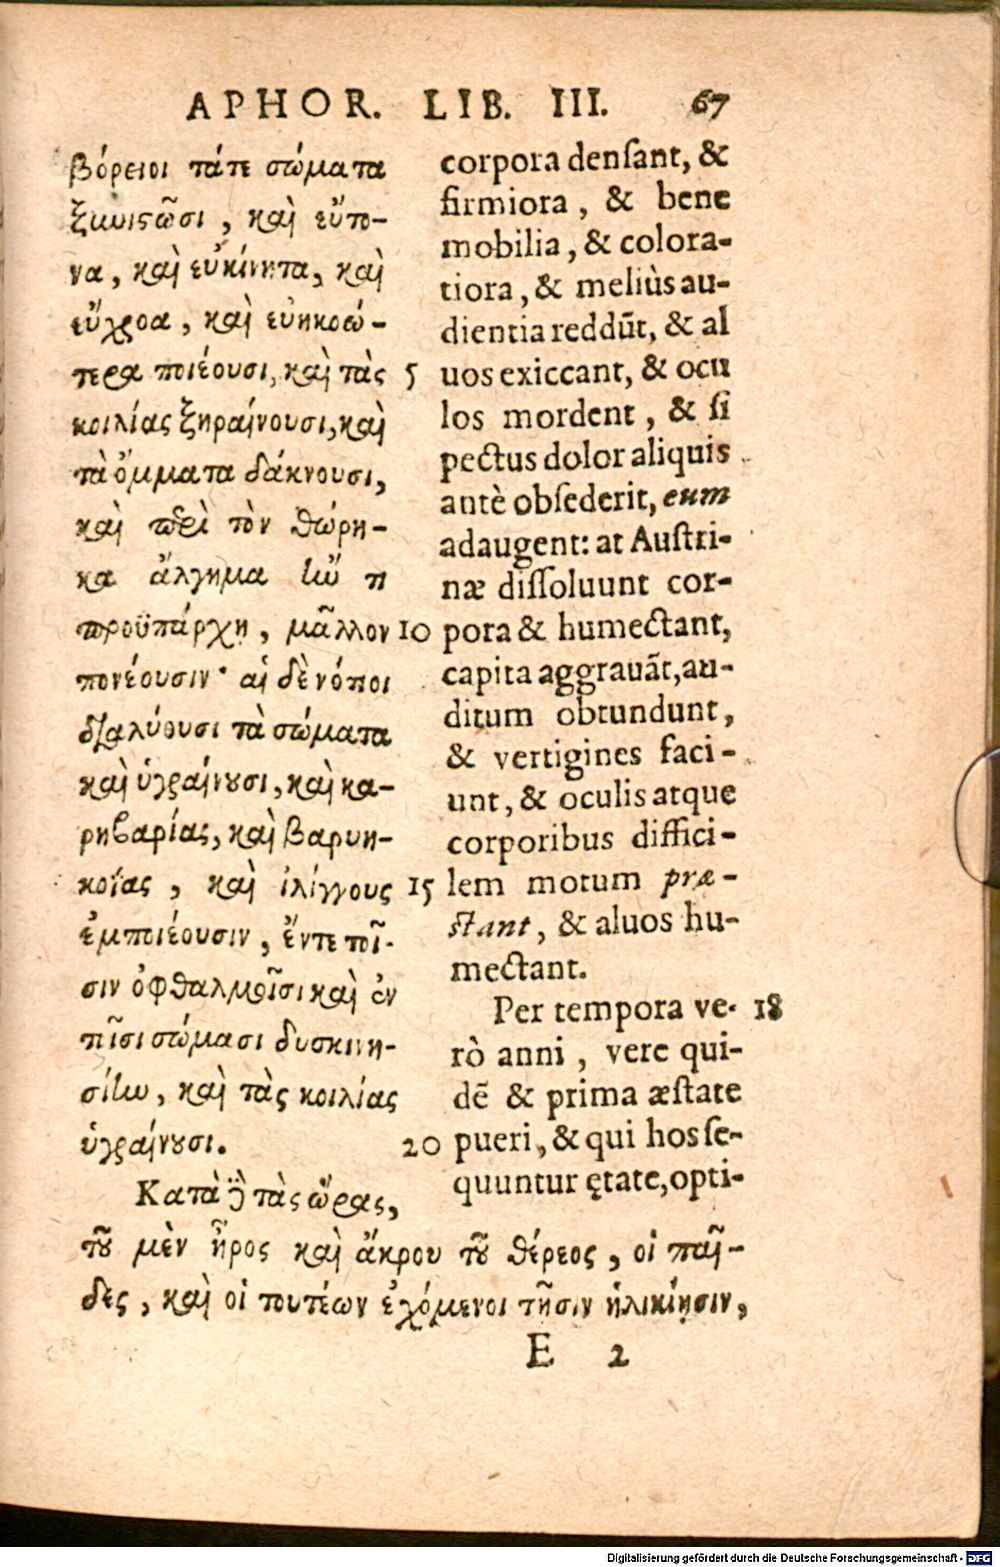 APHOR. LIB. III. 67
βόρειοι τάτε σώματα
ξυνιστῶσι, καὶ εὔπο-
να, καὶ εὐκίνητα, καὶ
εὔχροα, καὶ εὐηκοώ-
τερα ποιέουσι, καὶ τὰς 5
κοιλίας ξηραίνουσι, καὶ
τὰ ὄμματα δάκνουσι,
καὶ περὶ τὸν θώρη-
κα ἄλγημα ἢν τι
προϋπάρχη, μᾶλλον 10
πονέουσιν· αἱ δὲ νότιοι
διαλύουσι τὰ σώματα
καὶ ὑγραίνουσι, καὶ κα-
ρηβαρίας, καὶ βαρυη-
κοΐας, καὶ ἰλίγγους 15
ἐμποιέουσιν, ἔν τε τοῖ-
σιν ὀφθαλμοῖσι καὶ ἐν
τοῖσι σώμασι δυσκινη-
σίην, καὶ τὰς κοιλίας
ὑγραίνουσι. 20
Κατὰ δὲ τὰς ὥρας,
corpora densant, &
firmiora, & bene
mobilia, & colora-
tiora, & meliùs au-
dientia reddūt, & al
uos exiccant, & ocu
los mordent, & si
pectus dolor aliquis
antè obsederit, eum
adaugent: at Austri-
næ dissoluunt cor-
pora & humectant,
capita aggrauāt, au-
ditum obtundunt,
& vertigines faci-
unt, & oculis atque
corporibus diffici-
lem motum præ-
stant, & aluos hu-
mectant.
Per tempora ve- 18
rò anni, vere qui-
dē & prima æstate
pueri, & qui hos se-
quuntur ętate, opti-
τοῦ μὲν ἦρος καὶ ἄκρου τοῦ θέρεος, οἱ παῖ-
δες, καὶ οἱ τουτέων ἐχόμενοι τῇσιν ἡλικίῃσιν,
E 2
Digitalisierung gefördert durch die Deutsche Forschungsgemeinschaft - DFG